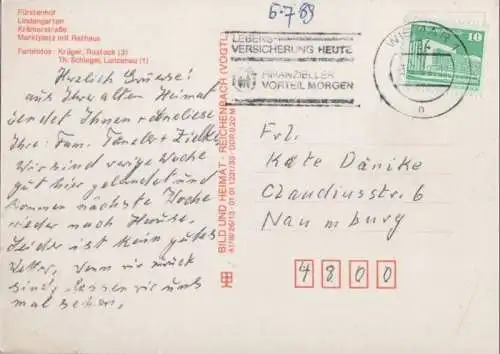 Fürstenhof
Lindengarten
Krämerstraße
Marktplatz mit Rathaus
Farbfotos: Krüger, Rostock (3)
Th. Schlegel, (1)
6.7.89
LEBENS-
VERSICHERUNG HEUTE
FINANZIELLER
VORTEIL MORGEN
10
Herzlich Grüsse!
aus Ihrer alten Heimat
sendet Ihnen
Ihre: Fam.
Wir sind vorige Woche
gut hier gelandet und
kommen nächste Woche
wieder nach Hause.
Leider ist kein gutes
Wetter, Wenn wir zurück
sind, lassen wir uns
mal sehen.
BILD UND HEIMAT · REICHENBACH (VOGTL)
Frl.
Käte Dänike
Claudiusstr. 6
Naumburg
4800